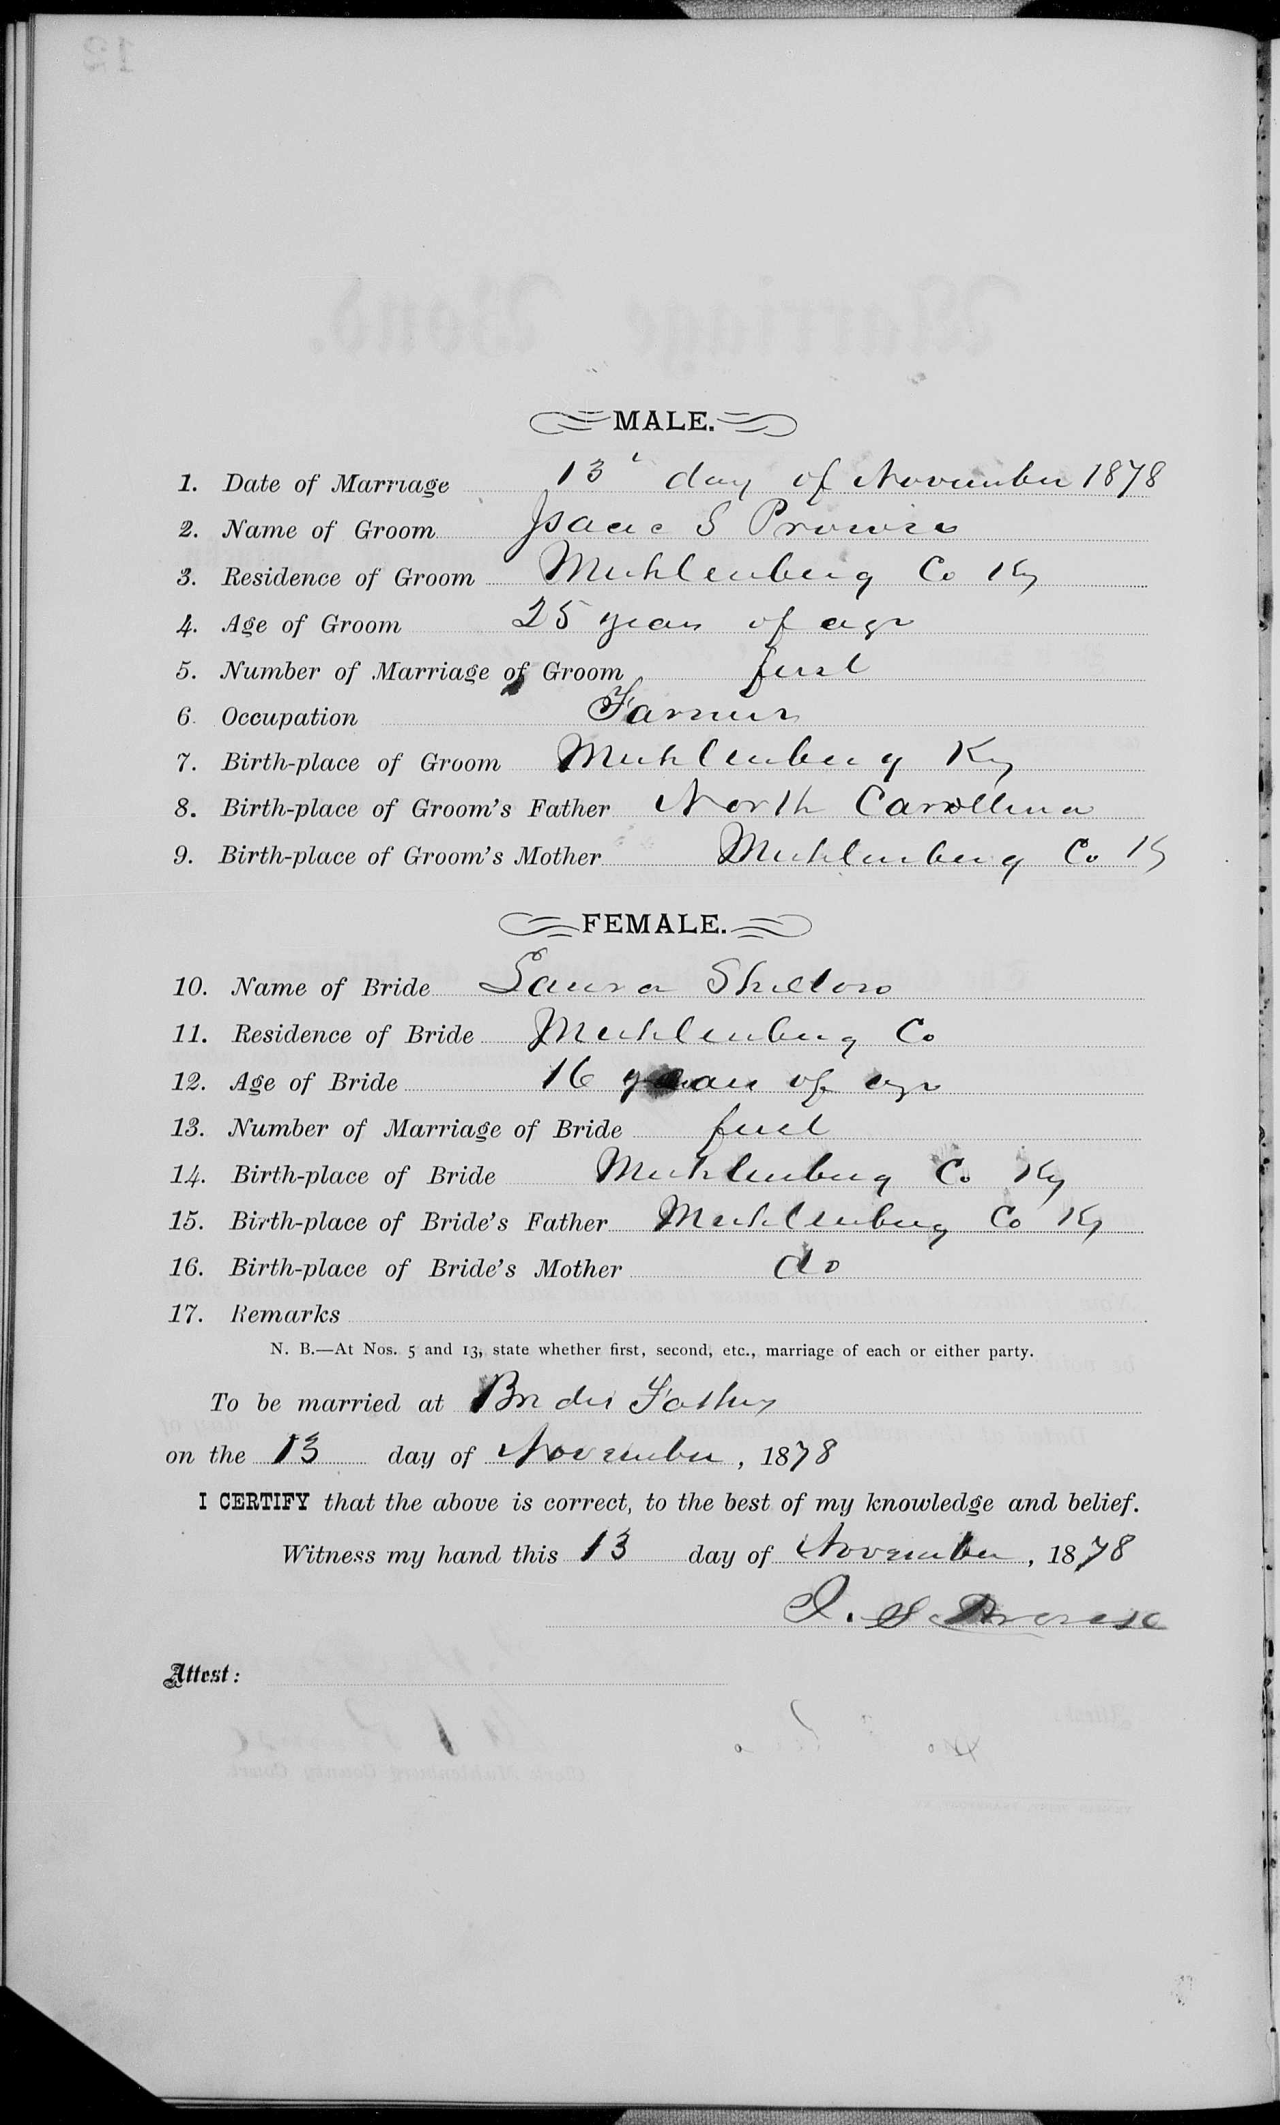 MALE.
1. Date of Marriage 13 day of November 1878
2. Name of Groom Isaac S Prowse
3. Residence of Groom Muhlenberg Co Ky
4. Age of Groom 25 years of age
5. Number of Marriage of Groom first
6. Occupation Farmer
7. Birth-place of Groom Muhlenberg Ky
8. Birth-place of Groom's Father North Carollina
9. Birth-place of Groom's Mother Muhlenberg Co K
FEMALE.
10. Name of Bride Laura Shelton
11. Residence of Bride Muhlenberg Co
12. Age of Bride 16 years of age
13. Number of Marriage of Bride first
14. Birth-place of Bride Muhlenberg Co Ky
15. Birth-place of Bride's Father Muhlenberg Co Ky
16. Birth-place of Bride's Mother do
17. Remarks
N. B.—At Nos. 5 and 13, state whether first, second, etc., marriage of each or either party.
To be married at Brides Fathers
on the 13 day of November, 1878
I CERTIFY that the above is correct, to the best of my knowledge and belief.
Witness my hand this 13 day of November, 1878
I. S. Prowse
Attest: